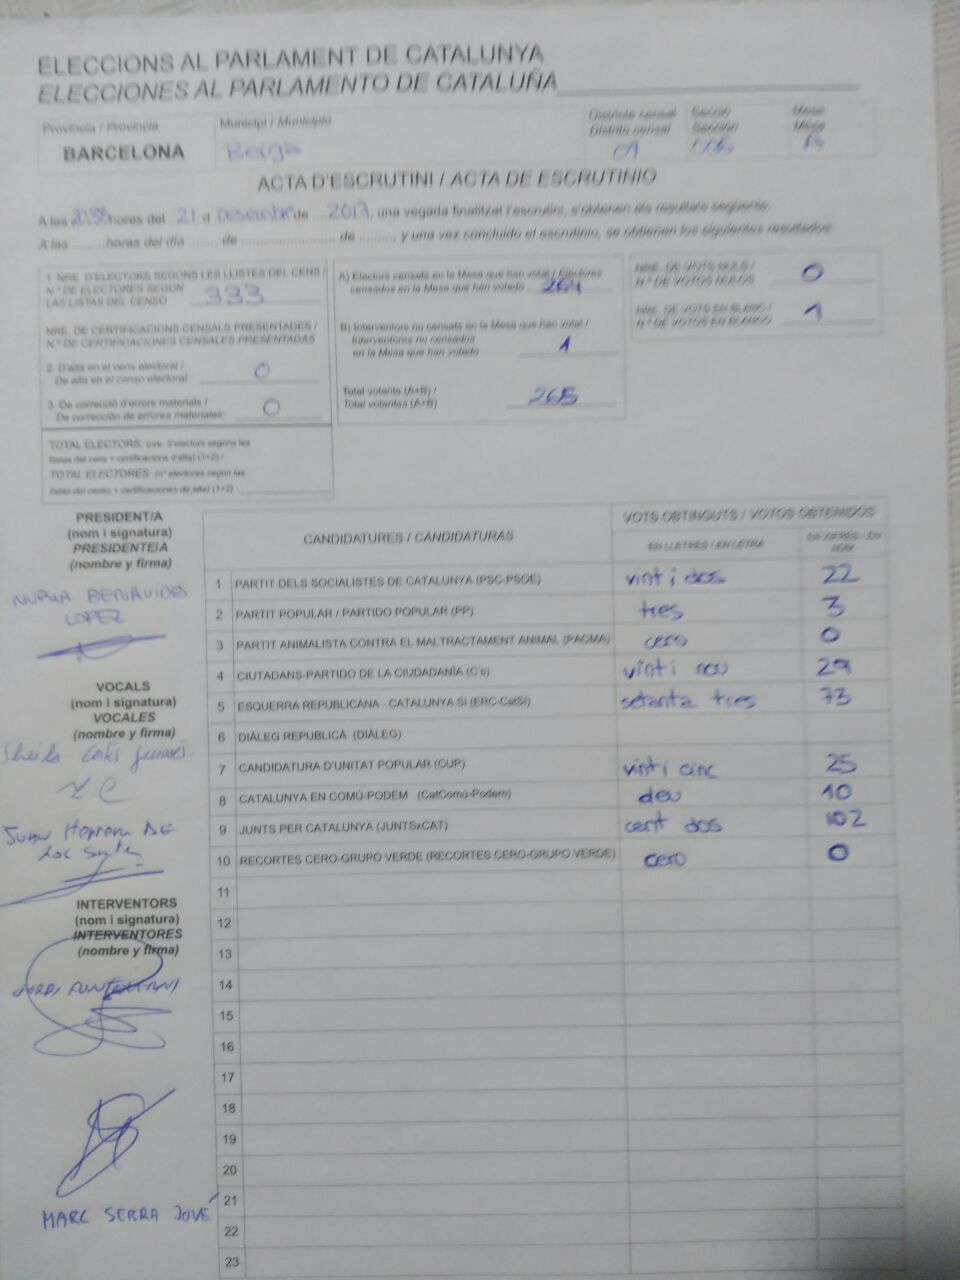 ELECCIONS AL PARLAMENT DE CATALUNYA
ELECCIONES AL PARLAMENTO DE CATALUÑA
Província / Provincia
BARCELONA
Municipi / Municipio
Berga
Districte censal
Distrito censal
01
Secció
Sección
Mesa
Mesa
ACTA D'ESCRUTINI / ACTA DE ESCRUTINIO
A les 20.58 hores del 21 d Desembre de 2017, una vegada finalitzat l'escrutini, s'obtenen els resultats següents:
A las ........horas del día ....... de ........................ de ........., y una vez concluido el escrutinio, se obtienen los siguientes resultados:
1. NRE. D'ELECTORS SEGONS LES LLISTES DEL CENS /
N.º DE ELECTORES SEGÚN
LAS LISTAS DEL CENSO 333
NRE. DE CERTIFICACIONS CENSALS PRESENTADES /
N.º DE CERTIFICACIONES CENSALES PRESENTADAS
2. D'alta en el cens electoral /
De alta en el censo electoral: 0
3. De correcció d'errors materials /
De corrección de errores materiales: 0
TOTAL ELECTORS: (nre. d'electors segons les
llistes del cens + certificacions d'alta) (1+2) /
TOTAL ELECTORES: (nº electores según las
listas del censo + certificaciones de alta) (1+2)
A) Electors censats en la Mesa que han votat / Electores
censados en la Mesa que han votado 264
B) Interventors no censats en la Mesa que han votat /
Interventores no censados
en la Mesa que han votado 1
Total votants (A+B) /
Total votantes (A+B) 265
NRE. DE VOTS NULS /
N.º DE VOTOS NULOS 0
NRE. DE VOTS EN BLANC /
N.º DE VOTOS EN BLANCO 1
PRESIDENT/A
(nom i signatura)
PRESIDENTE/A
(nombre y firma)
NURIA BENAVIDES
LOPEZ
VOCALS
(nom i signatura)
VOCALES
(nombre y firma)
Sheila
INTERVENTORS
(nom i signatura)
INTERVENTORES
(nombre y firma)
JORDI
MARC SERRA JOVÉ
CANDIDATURES / CANDIDATURAS
VOTS OBTINGUTS / VOTOS OBTENIDOS
EN LLETRES / EN LETRA
1 PARTIT DELS SOCIALISTES DE CATALUNYA (PSC-PSOE) vint i dos 22
2 PARTIT POPULAR / PARTIDO POPULAR (PP) tres 3
3 PARTIT ANIMALISTA CONTRA EL MALTRACTAMENT ANIMAL (PACMA) cero 0
4 CIUTADANS-PARTIDO DE LA CIUDADANÍA (C's) vint i nou 29
5 ESQUERRA REPUBLICANA - CATALUNYA SÍ (ERC-CatSí) setanta tres 73
6 DIÀLEG REPUBLICÀ (DIÀLEG)
7 CANDIDATURA D'UNITAT POPULAR (CUP) vint i cinc 25
8 CATALUNYA EN COMÚ-PODEM (CatComú-Podem) deu 10
9 JUNTS PER CATALUNYA (JUNTSxCAT) cent dos 102
10 RECORTES CERO-GRUPO VERDE (RECORTES CERO-GRUPO VERDE) cero 0
11
12
13
14
15
16
17
18
19
20
21
22
23